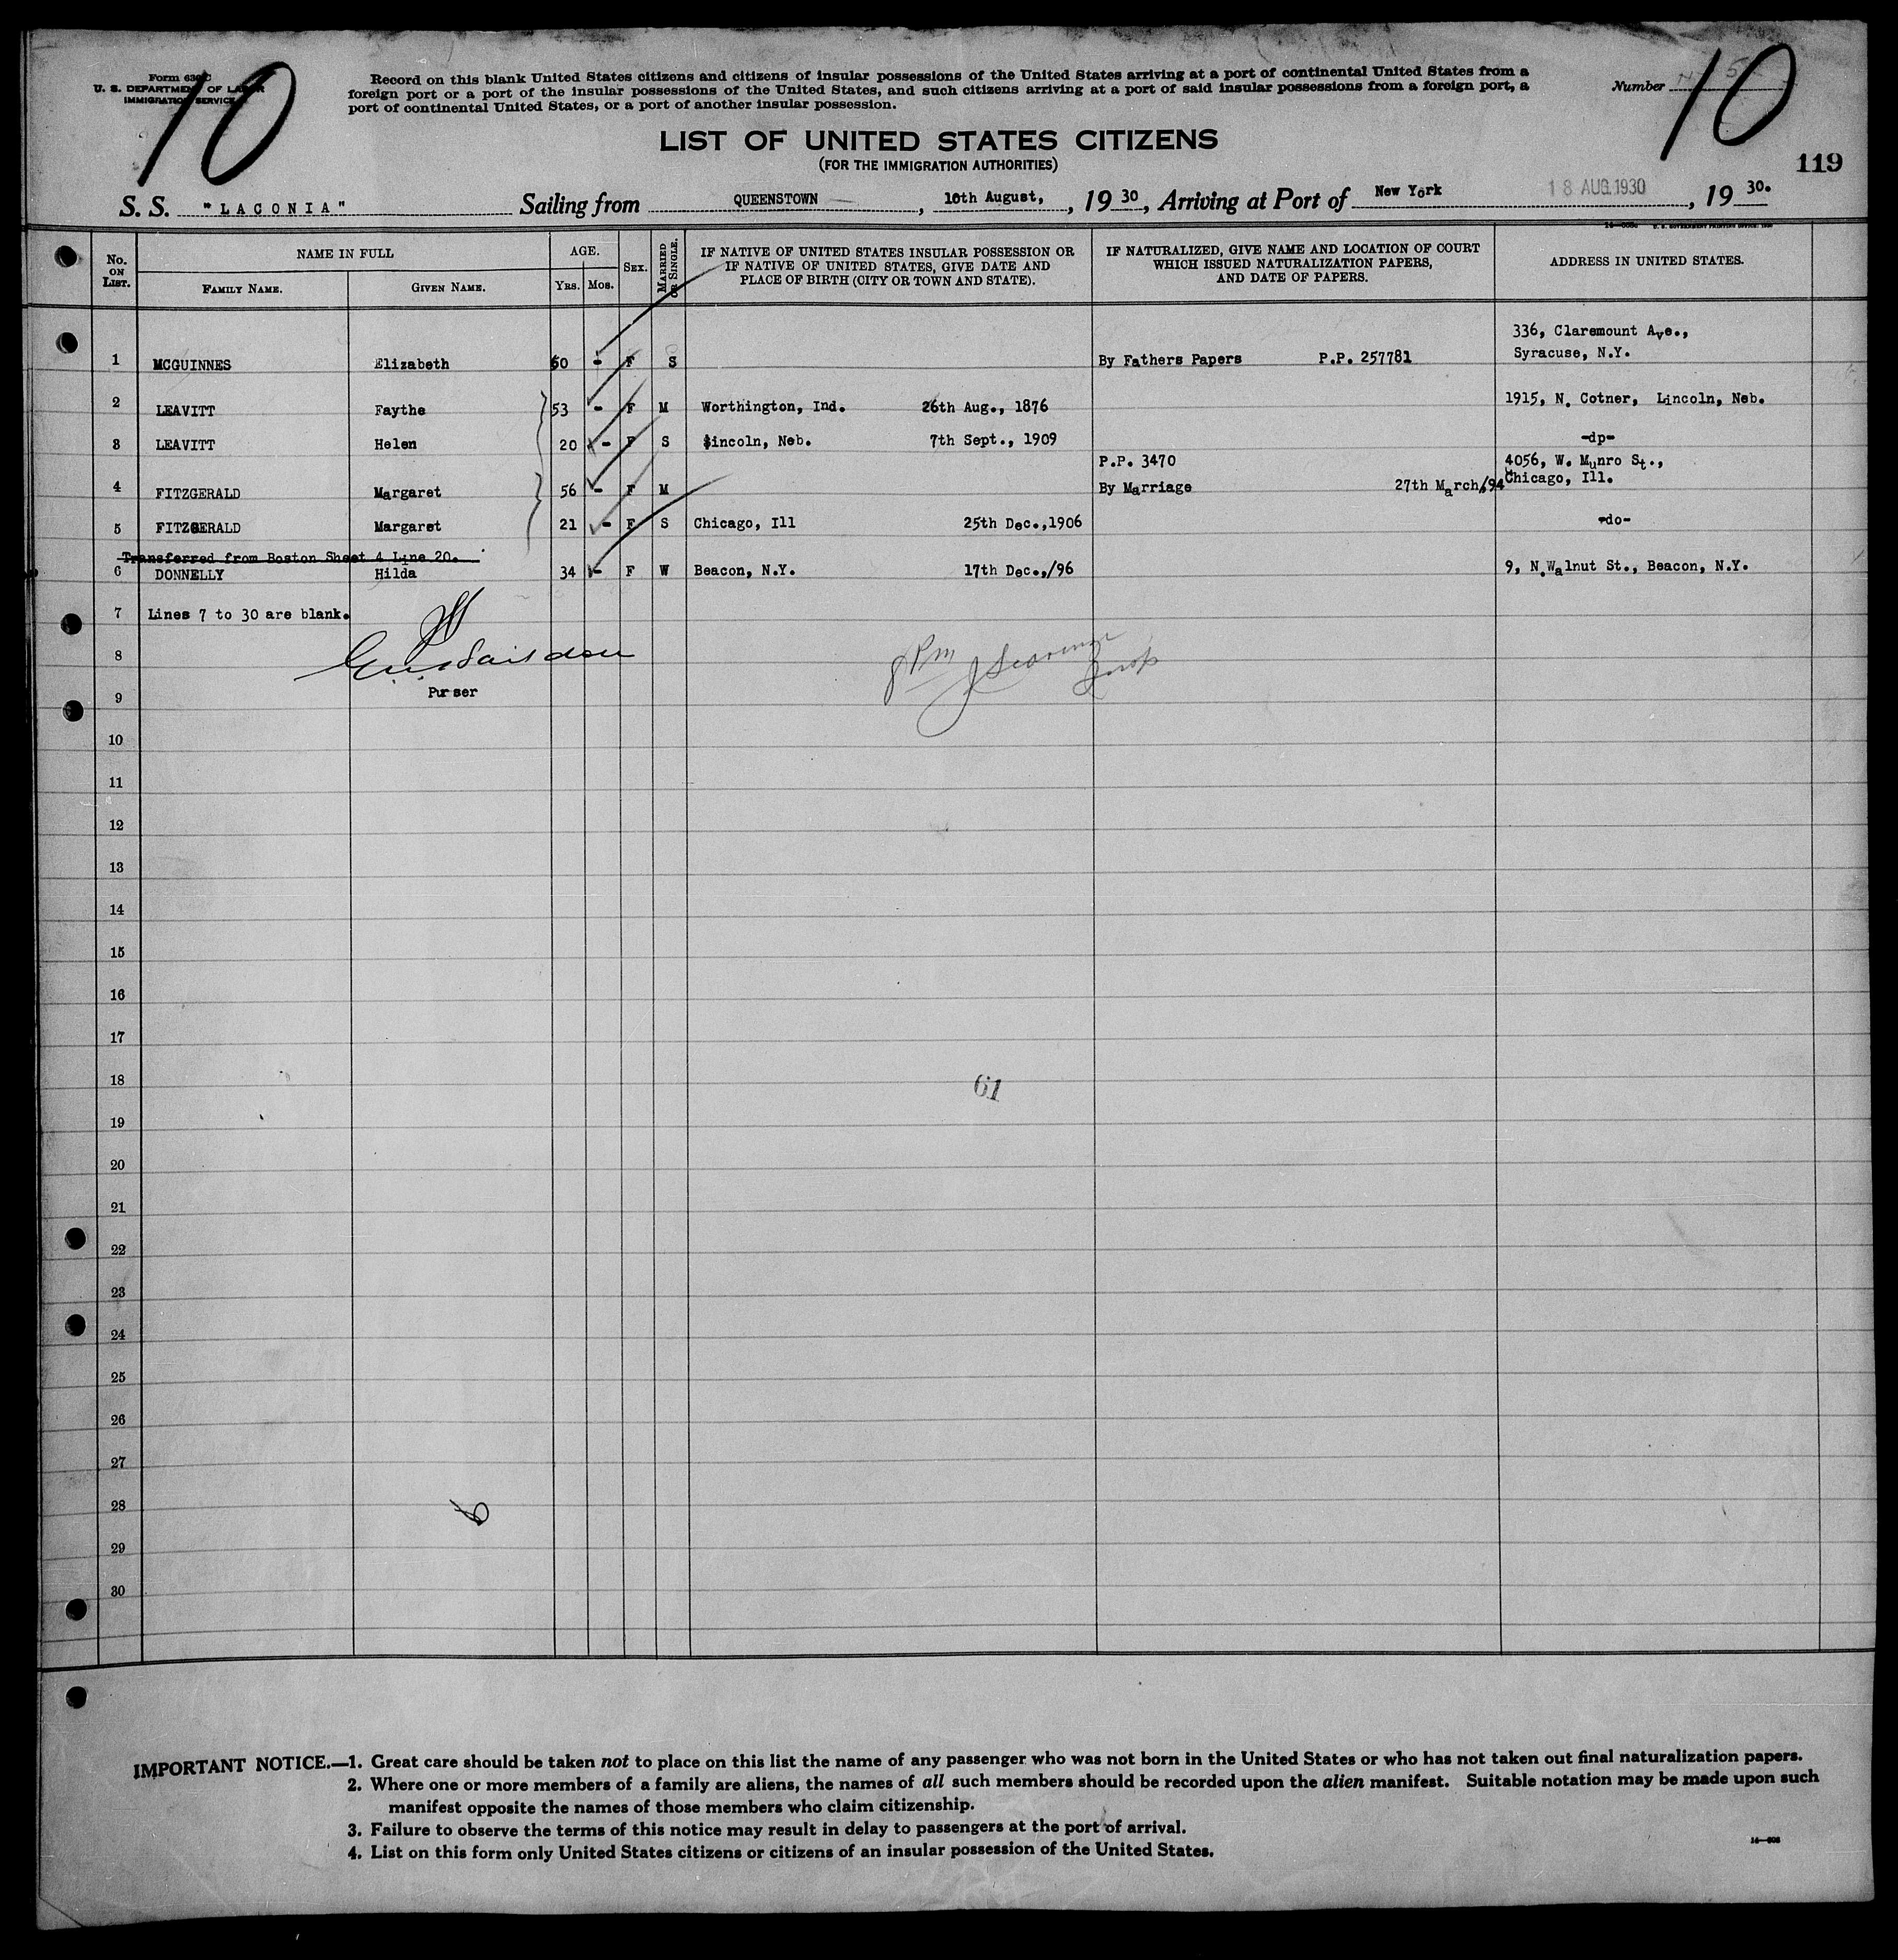 10
10
Form 630 C
U. S. DEPARTMENT OF LABOR
IMMIGRATION SERVICE
Record on this blank United States citizens and citizens of insular possessions of the United States arriving at a port of continental United States from a
foreign port or a port of the insular possessions of the United States, and such citizens arriving at a port of said insular possessions from a foreign port, a
port of continental United States, or a port of another insular possession.
Number
LIST OF UNITED STATES CITIZENS
(FOR THE IMMIGRATION AUTHORITIES)
119
S. S. "LACONIA" Sailing from QUEENSTOWN, 10th August, 1930, Arriving at Port of New York 18 AUG.1930, 1930.
No. ON LIST. NAME IN FULL AGE. SEX. MARRIED OR SINGLE. IF NATIVE OF UNITED STATES INSULAR POSSESSION OR IF NATIVE OF UNITED STATES, GIVE DATE AND PLACE OF BIRTH (CITY OR TOWN AND STATE). IF NATURALIZED, GIVE NAME AND LOCATION OF COURT WHICH ISSUED NATURALIZATION PAPERS, AND DATE OF PAPERS. ADDRESS IN UNITED STATES.
FAMILY NAME. GIVEN NAME. YRS. MOS.
336, Claremount Ave.,
1 MCGUINNES Elizabeth 60 - F S By Fathers Papers P.P. 257781 Syracuse, N.Y.
2 LEAVITT Faythe 53 - F M Worthington, Ind. 26th Aug., 1876 1915, N. Cotner, Lincoln, Neb.
3 LEAVITT Helen 20 - F S Lincoln, Neb. 7th Sept., 1909 -dp-
P.P. 3470 4056, W. Munro St.,
4 FITZGERALD Margaret 56 - F M By Marriage 27th March/94 Chicago, Ill.
5 FITZGERALD Margaret 21 - F S Chicago, Ill 25th Dec.,1906 -do-
Transferred from Boston Sheet 4 Line 20.
6 DONNELLY Hilda 34 - F W Beacon, N.Y. 17th Dec.,/96 9, N.Walnut St., Beacon, N.Y.
7 Lines 7 to 30 are blank.
8
Purser
9
10
11
12
13
14
15
16
17
18
61
19
20
21
22
23
24
25
26
27
28
29
30
IMPORTANT NOTICE.—1. Great care should be taken not to place on this list the name of any passenger who was not born in the United States or who has not taken out final naturalization papers.
2. Where one or more members of a family are aliens, the names of all such members should be recorded upon the alien manifest. Suitable notation may be made upon such
manifest opposite the names of those members who claim citizenship.
3. Failure to observe the terms of this notice may result in delay to passengers at the port of arrival.
4. List on this form only United States citizens or citizens of an insular possession of the United States.